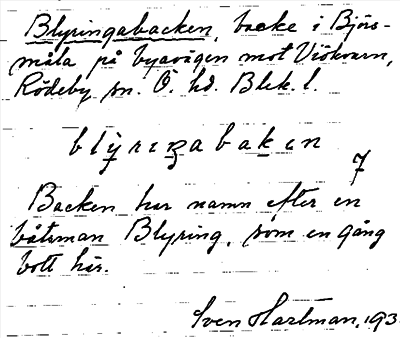 Blyringabacken, backe i Björs-
måla på byavägen mot Viökvarn,
Rödeby sn. Ö. hd. Blek. l.
blyrıŋabakən
7
Backen har namn efter en
båtsman Blyring, som en gång
bott här.
Sven Hartman, 193